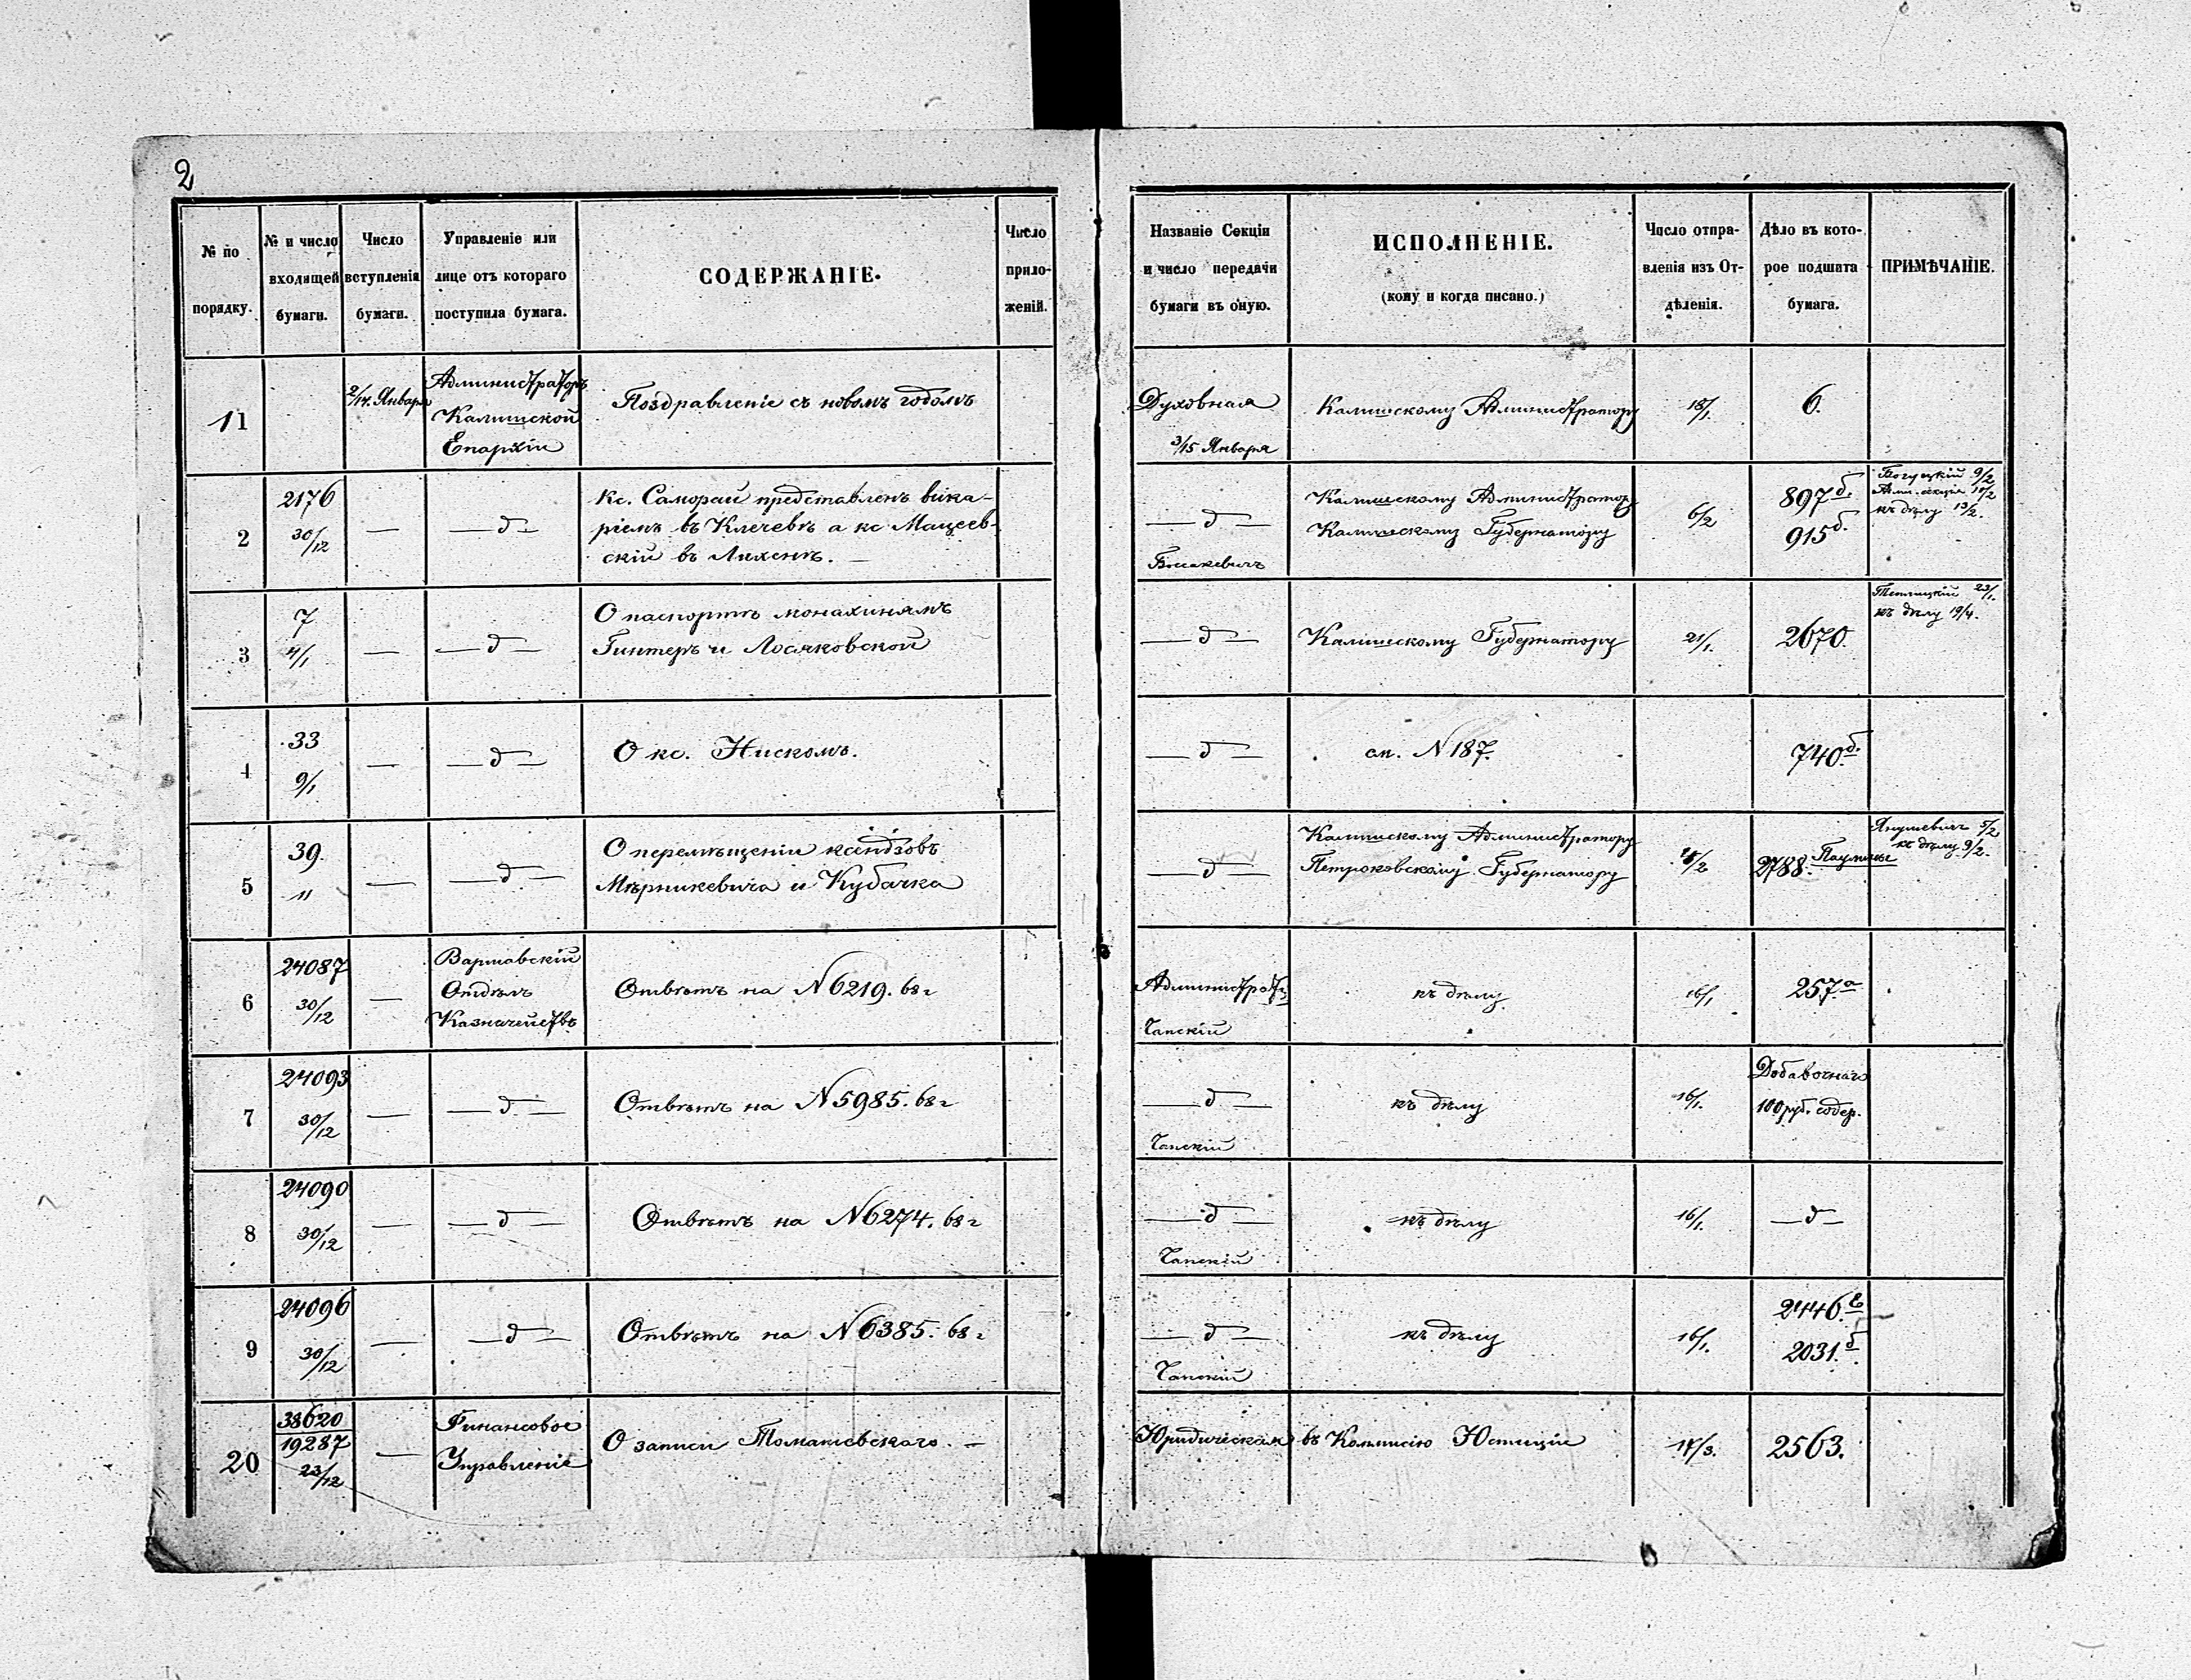 2
№ по порядку.
№ и число входящей бумаги.
Число вступленія бумаги.
Управленіе или лице отъ котораго поступила бумага.
СОДЕРЖАНІЕ.
Число приложеній.
Названіе Секціи и число передачи бумаги въ оную.
ИСПОЛНЕНІЕ.
(кому и когда писано.)
Число отправленія изъ Отдѣленія.
Дѣло въ которое подшита бумага.
ПРИМѢЧАНІЕ.
11
2/14 Января
Администраторъ
Калишской
Епархіи
Поздравленіе съ новымъ годомъ
Духовная
3/15 Января
Калишскому Администратору
18/1.
6.
2
2176
30/12
—
— д —
Кс. Саморай представленъ вика-
ріемъ въ Клечевъ а кс Мацеев-
скій въ Лихенъ. —
— д —
Калишскому Администратору
Калишскому Губернатору
6/2
897 б.
915 б.
Богуцкій 9/2
къ дѣлу 13/2.
3
7
4/1
—
— д —
О паспортѣ монахинямъ
Гинтеръ и Лосяковской
— д —
Калишскому Губернатору
21/1.
2670.
23/1.
къ дѣлу 19/4.
4
33
9/1
—
— д —
О кс. Нискомъ.
— д —
см. N 187.
740 б.
5
39.
11
—
— д —
О перемѣщеніи ксендзовъ
Мѣрникевича и Кубачка
— д —
Калишскому Администратору
Петроковскому Губернатору
2788.
Янушевичъ 5/2
къ дѣлу 9/2.
6
24087
30/12
—
Варшавскій
Отдѣлъ
Казначействъ
Отвѣтъ на N 6219. 68 г
Администрат.
Чапскій
къ дѣлу
16/1
257 а
7
24093
30/12
—
— д —
Отвѣтъ на N 5985. 68 г
— д —
Чапскій
къ дѣлу
16/1.
Добавочнаго
100 руб. содер.
8
24090
30/12
—
— д —
Отвѣтъ на N 6274. 68 г
— д —
Чапскій
къ дѣлу
16/1.
— д —
9
24096
30/12
—
— д —
Отвѣтъ на N 6385. 68 г
— д —
Чапскій
къ дѣлу
16/1.
2446. в
2031. б
20
38620
19287
23/12
—
Финансовое
Управленіе
О записи Томашевскаго. —
Юридическая
въ Коммисію Юстиціи
17/3.
2563.